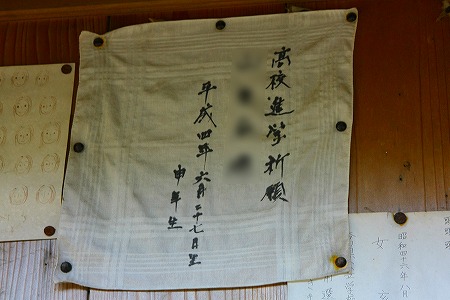 高校進学祈願
平成四年六月二十七日生
申年生
昭和四十六年八
女